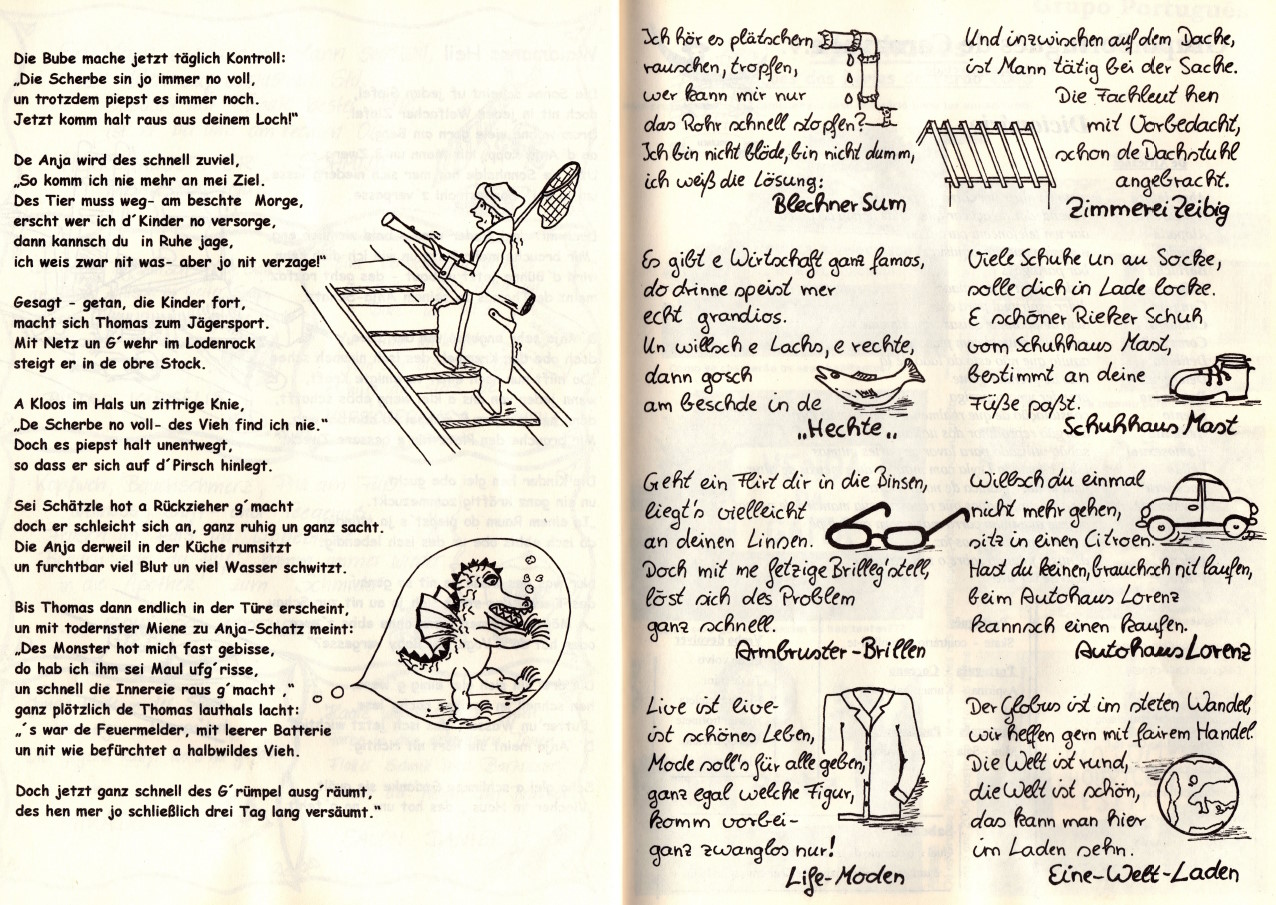 Die Bube mache jetzt täglich Kontroll:
„Die Scherbe sin jo immer no voll,
un trotzdem piepst es immer noch.
Jetzt komm halt raus aus deinem Loch!“
De Anja wird des schnell zuviel,
„So komm ich nie mehr an mei Ziel.
Des Tier muss weg- am beschte  Morge,
erscht wer ich d´Kinder no versorge,
dann kannsch du  in Ruhe jage,
ich weis zwar nit was- aber jo nit verzage!“
Gesagt - getan, die Kinder fort,
macht sich Thomas zum Jägersport.
Mit Netz un G´wehr im Lodenrock
steigt er in de obre Stock.
A Kloos im Hals un zittrige Knie,
„De Scherbe no voll- des Vieh find ich nie.“
Doch es piepst halt unentwegt,
so dass er sich auf d´Pirsch hinlegt.
Sei Schätzle hot a Rückzieher g´macht
doch er schleicht sich an, ganz ruhig un ganz sacht.
Die Anja derweil in der Küche rumsitzt
un furchtbar viel Blut un viel Wasser schwitzt.
Bis Thomas dann endlich in der Türe erscheint,
un mit todernster Miene zu Anja-Schatz meint:
„Des Monster hot mich fast gebisse,
do hab ich ihm sei Maul ufg´risse,
un schnell die Innereie raus g´macht ,“
ganz plötzlich de Thomas lauthals lacht:
„´s war de Feuermelder, mit leerer Batterie
un nit wie befürchtet a halbwildes Vieh.
Doch jetzt ganz schnell des G´rümpel ausg´räumt,
des hen mer jo schließlich drei Tag lang versäumt.“
Ich hör es plätschern
rauschen, tropfen,
wer kann mir nur
das Rohr schnell stopfen?
Ich bin nicht blöde, bin nicht dumm,
ich weiß die Lösung:
Blechner Sum
Es gibt e Wirtschaft ganz famos,
do drinne speist mer
echt grandios.
Un willsch e Lachs, e rechte,
dann gosch
am beschde in de
„Hechte„
Geht ein Flirt dir in die Binsen,
liegt's vielleicht
an deinen Linsen.
Doch mit me fetzige Brilleg'stell,
löst sich des Problem
ganz schnell.
Armbruster-Brillen
Live ist live-
ist schönes Leben,
Mode soll's für alle geben,
ganz egal welche Figur,
komm vorbei-
ganz zwanglos nur!
Life-Moden
Und inzwischen auf dem Dache,
ist Mann tätig bei der Sache.
Die Fachleut hen
mit Vorbedacht,
schon de Dachstuhl
angebracht.
Zimmerei Zeibig
Viele Schuhe un au Socke,
solle dich in Lade locke.
E schöner Rieker Schuh
vom Schuhhaus Mast,
bestimmt an deine
Füße paßt.
Schuhhaus Mast
Willsch du einmal
nicht mehr gehen,
sitz in einen Citroen.
Hast du keinen, brauchsch nit laufen,
beim Autohaus Lorenz
kannsch einen kaufen.
Autohaus Lorenz
Der Globus ist im steten Wandel,
wir helfen gern mit fairem Handel.
Die Welt ist rund,
die Welt ist schön,
das kann man hier
im Laden sehn.
Eine-Welt-Laden